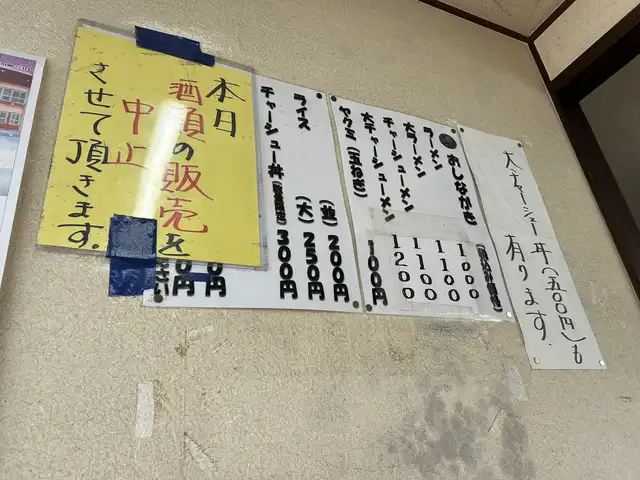 大チャーシュー丼(五〇〇円)も
有ります。
おしながき
ラーメン 1000
大ラーメン 1100
チャーシューメン 1100
大チャーシューメン 1200
ヤクミ(玉ねぎ) 100円
ライス (並) 200円
(大) 250円
チャーシュー丼 300円
本日
酒類の販売を
中止
させて頂きます。